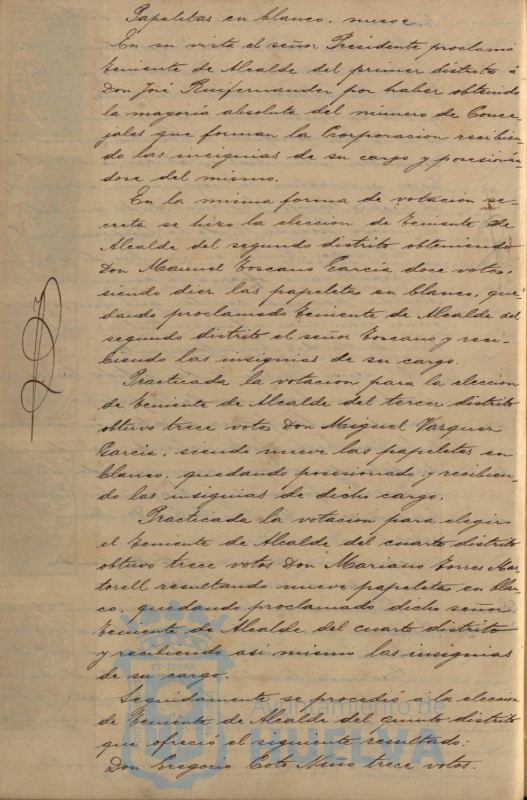 Papeletas en blanco, nueve.
En su vista el señor Presidente proclamó
teniente de Alcalde del primer distrito á
Don José Ruifernandez por haber obtenido
la mayoria absoluta del número de Conce-
jales que forman la Corporacion recibien-
do las insignias de su cargo y posesionán-
dose del mismo.
En la misma forma de votacion se-
creta se hizo la eleccion de teniente de
Alcalde del segundo distrito obteniendo
Don Manuel Toscano Garcia doce votos,
siendo diez las papeletas en blanco, que-
dando proclamado teniente de Alcalde del
segundo distrito el señor Toscano y reci-
biendo las insignias de su cargo.
Practicada la votacion para la eleccion
de teniente de Alcalde del tercer distrito
obtuvo trece votos Don Miguel Vazquez
Garcia, siendo nueve las papeletas en
blanco, quedando posesionado y recibien-
do las insignias de dicho cargo.
Practicada la votacion para elegir
el teniente de Alcalde del cuarto distrito
obtuvo trece votos Don Mariano Mar-
torell resultando nueve papeletas en blan-
co, quedando proclamado dicho señor
teniente de Alcalde del cuarto distrito
y recibiendo asi mismo las insignias
de su cargo.
Seguidamente se procedió a la eleccion
de teniente de Alcalde del quinto distrito
que ofreció el siguiente resultado:
Don Gregorio Coto trece votos.
ET TERRÆ
Ayuntamiento de
HUELVA